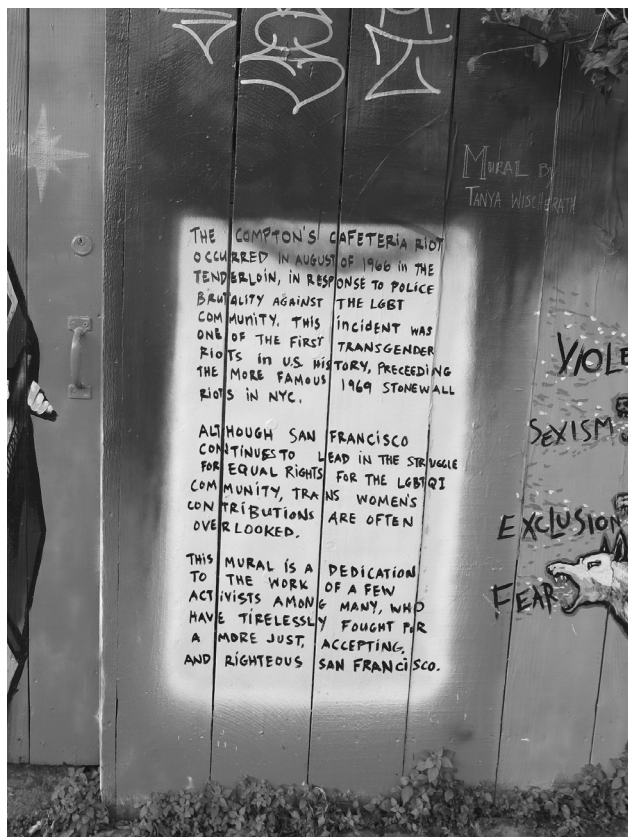 MURAL BY
TANYA WISCHERATH
THE COMPTON'S CAFETERIA RIOT
OCCURRED IN AUGUST OF 1966 in THE
TENDERLOIN, IN RESPONSE TO POLICE
BRUTALITY AGAINST THE LGBT
COMMUNITY. THIS incident was
ONE OF THE FIRST TRANSGENDER
RIOTS in U.S. HISTORY, PRECEEDING
THE MORE FAMOUS 1969 STONEWALL
RIOTS IN NYC.
ALTHOUGH SAN FRANCISCO
CONTINUES TO LEAD IN THE STRUGGLE
FOR EQUAL RIGHTS FOR THE LGBTQI
COMMUNITY, TRANS WOMEN'S
CONTRIBUTIONS ARE OFTEN
OVERLOOKED.
THIS MURAL IS A DEDICATION
TO THE WORK OF A FEW
ACTIVISTS AMONG MANY, WHO
HAVE TIRELESSLY FOUGHT FOR
A MORE JUST, ACCEPTING,
AND RIGHTEOUS SAN FRANCISCO.
VIOLE
SEXISM
EXCLUSION
FEAR